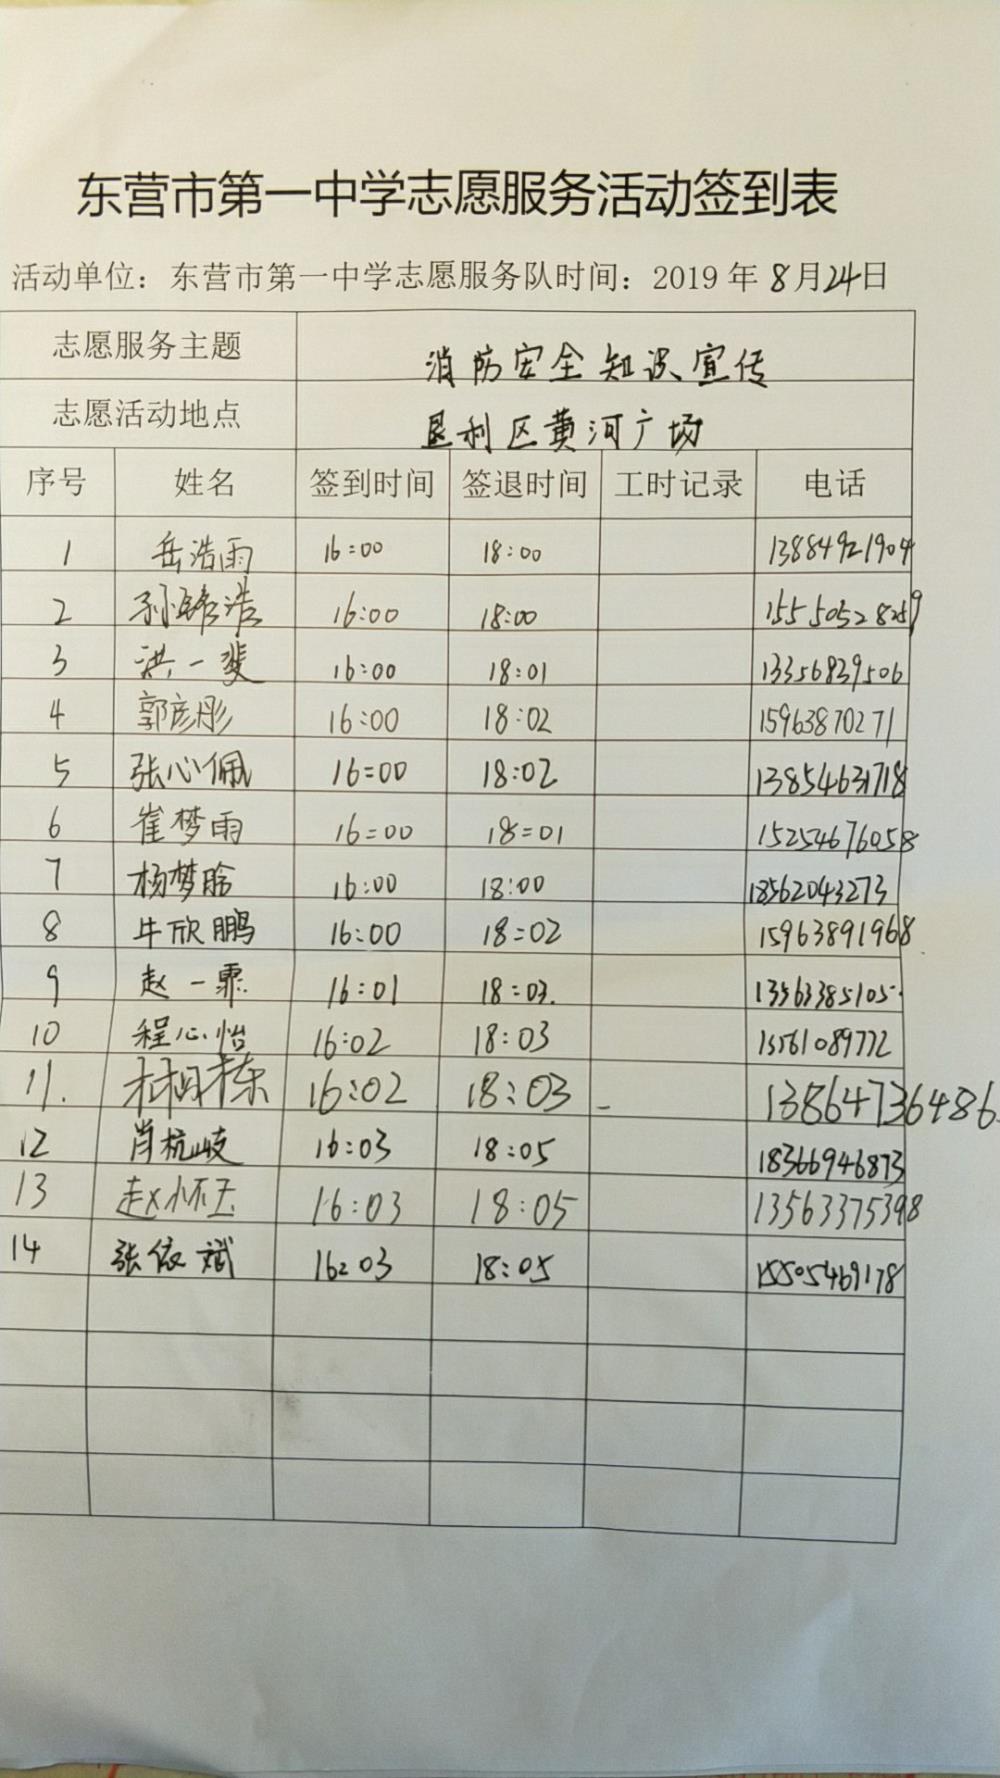 东营市第一中学志愿服务活动签到表
活动单位：东营市第一中学志愿服务队时间：2019 年 8月24日
志愿服务主题 消防安全知识宣传
志愿活动地点 垦利区黄河广场
序号 姓名 签到时间 签退时间 工时记录 电话
1 岳浩雨 16:00 18:00 13884921904
2 孙 浩 16:00 18:00 15550528259
3 洪一斐 16:00 18:01 13356839506
4 郭彦彤 16:00 18:02 15963870271
5 张心佩 16=00 18:02 13854631718
6 崔梦雨 16=00 18=01 15254676058
7 杨梦晗 16:00 18:00 18562043273
8 牛欣鹏 16:00 18=02 15963891968
9 赵一霏 16:01 18:03. 13563385105
10 程心怡 16:02 18:03 13561089772
11. 栋 16:02 18:03 13864736486
12 肖杭岐 16:03 18:05 18366946873
13 赵怀玉 16:03 18:05 13563375398
14 张依斌 16:03 18:05 15505469178